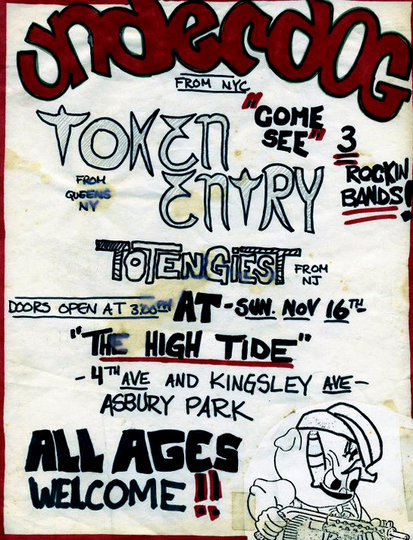 UNDERDOG
FROM NYC
TOKEN
ENTRY
FROM
QUEENS
NY
"COME
SEE"
3
ROCKIN
BANDS!
TOTENGIEST
FROM
NJ
DOORS OPEN AT 3:00PM AT - SUN. NOV 16TH -
"THE HIGH TIDE"
- 4TH AVE AND KINGSLEY AVE -
ASBURY PARK
ALL AGES
WELCOME!!